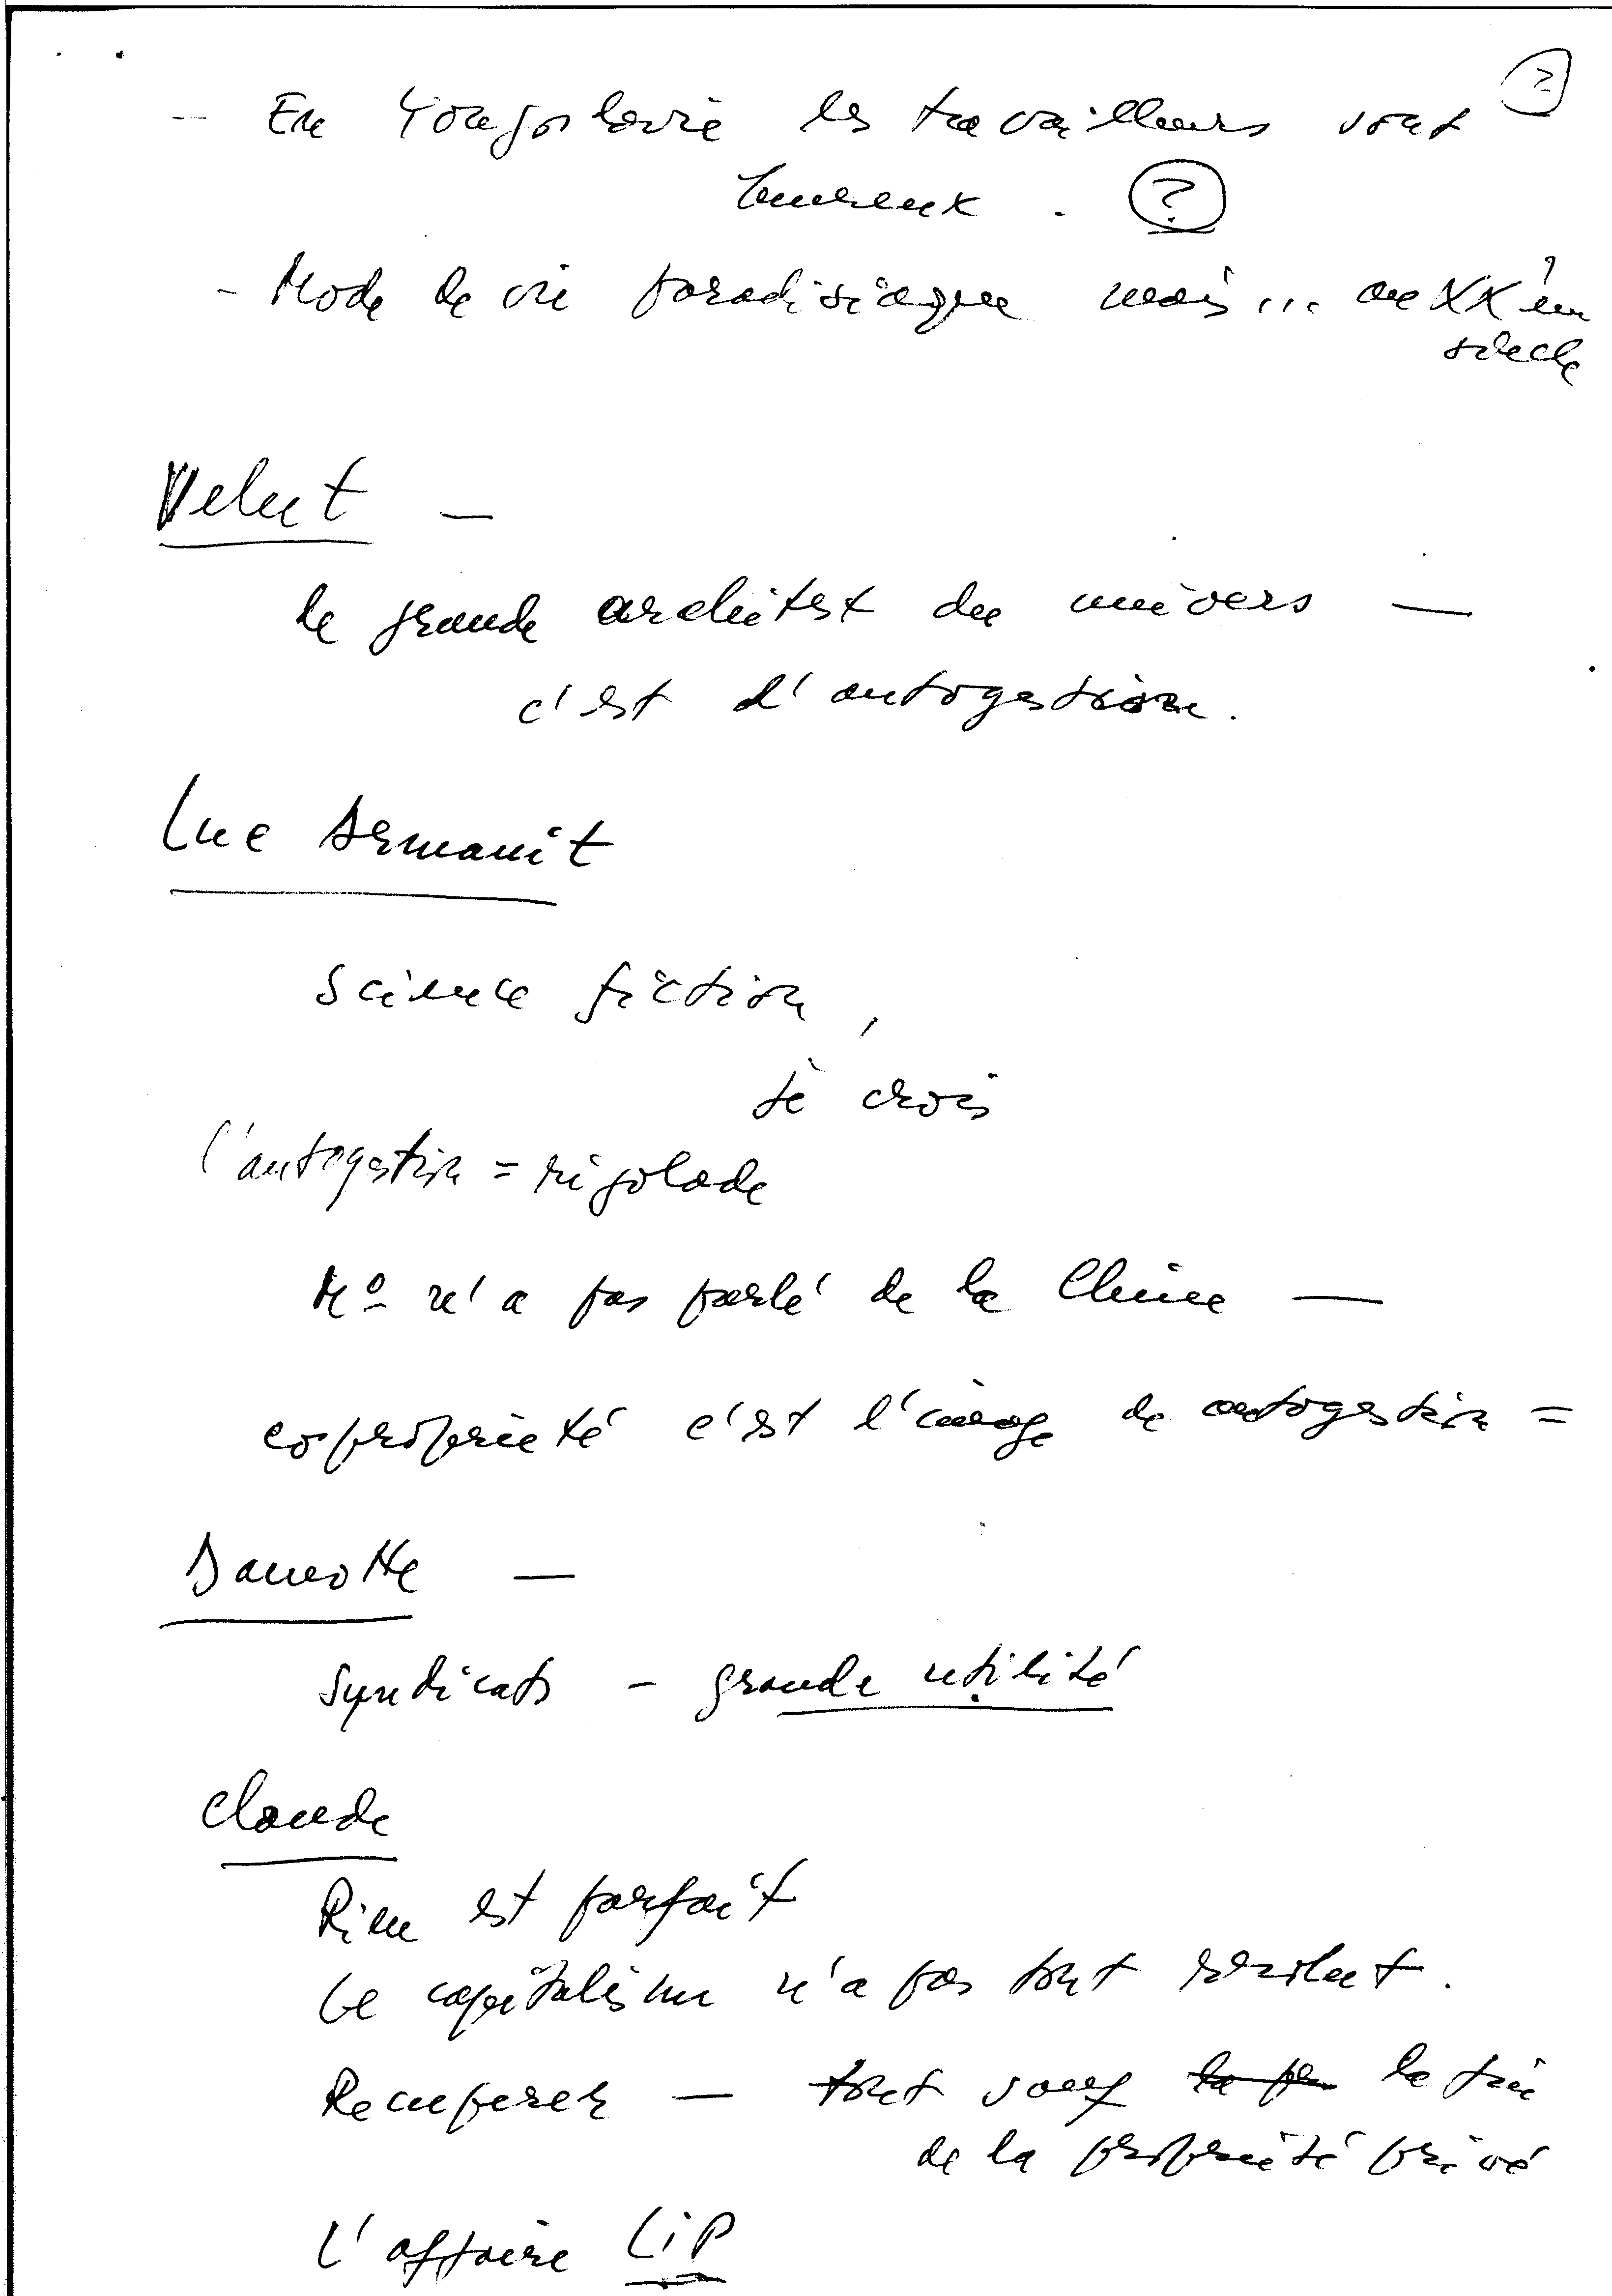 ?
- En Yougoslavie les travailleurs sont
heureux. ?
- Mode de vie paradisiaque mais... au XXèm
siècle
Velut —
le grande architect du univers —
c'est l'autogestion.
Luc Armanit
Science fiction,
je crois
l'autogestion = rigolade
Mº n'a pas parlé de la Chine —
copropriété c'est l'image de autogestion =
syndicats - grande utilité
Claude
Rien est parfait
Le capitalisme n'a pas tout résolut.
Recuperer — tout sauf la fin
de la propriété privé
L'affaire LiP